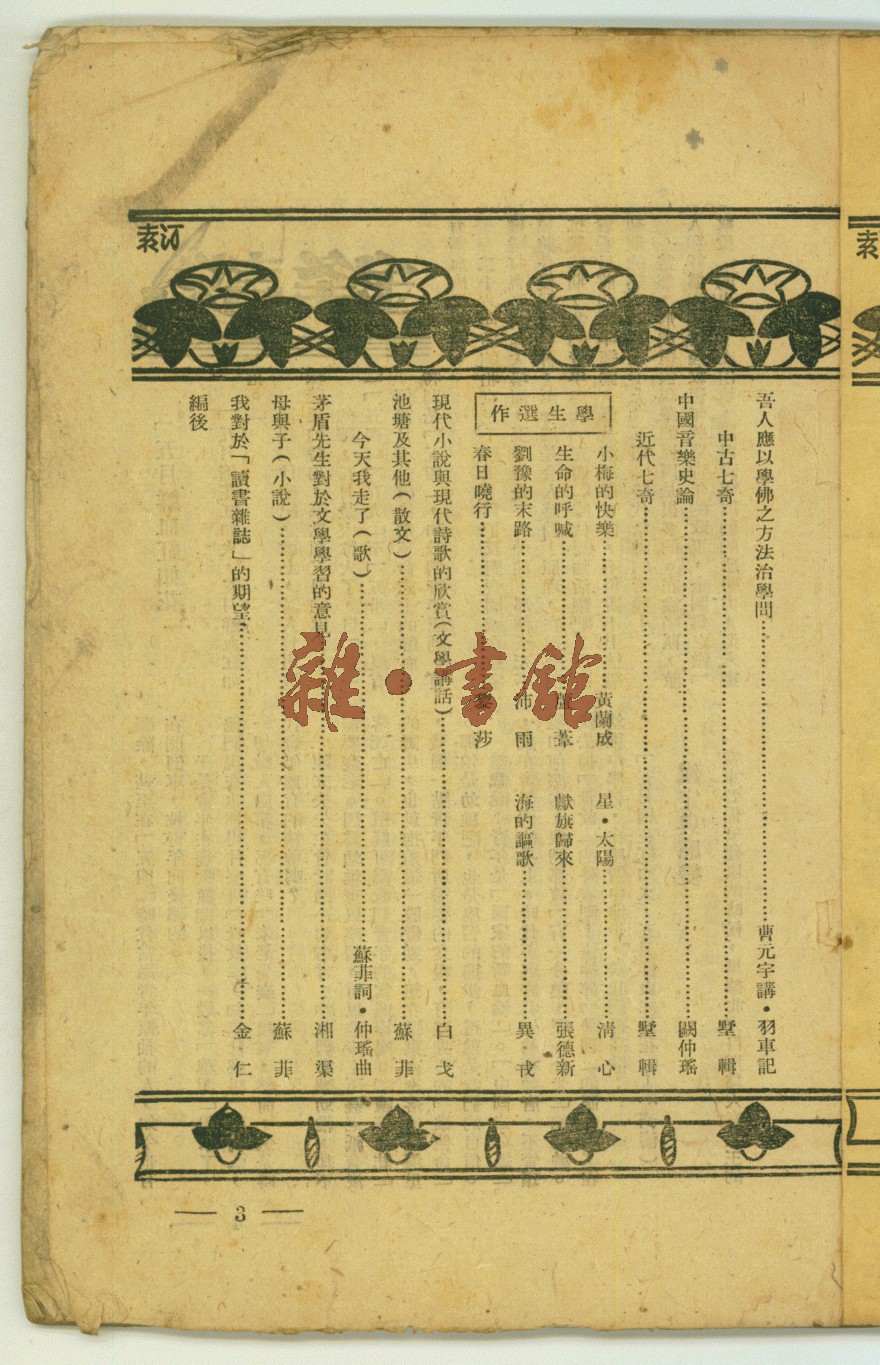 吾人應以學佛之方法治學問……曹元宇講・羽車記
中古七奇……墅輯
中國音樂史論……闕仲瑤
近代七奇……墅輯
學生選作
小梅的快樂……黃蘭成　星・太陽……清心
生命的呼喊……蘆葦　獻旗歸來……張德新
劉豫的末路……沛雨　海的謳歌……異戎
春日曉行……莎
現代小說與現代詩歌的欣賞（文學講話）……白戈
池塘及其他（散文）……蘇菲
今天我走了（歌）……蘇菲詞・仲瑤曲
茅盾先生對於文學學習的意見……湘渠
母與子（小說）……蘇菲
我對於「讀書雜誌」的期望……金仁
編後
— 3 —
雜・書館